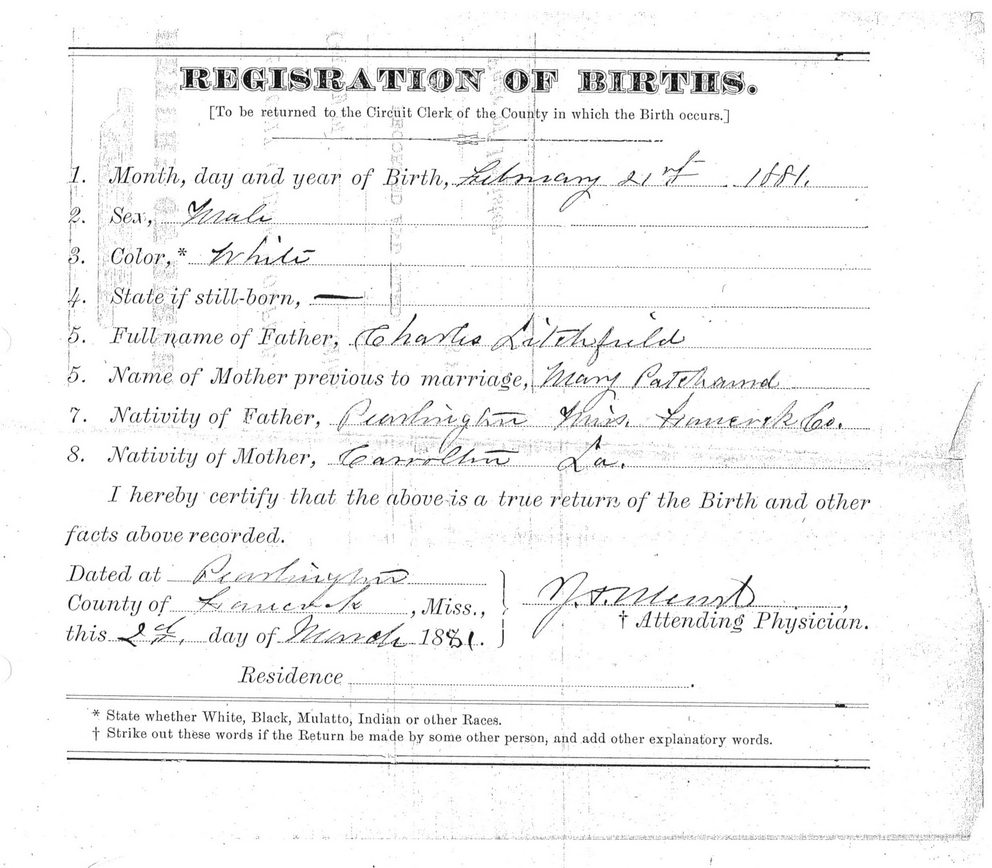 REGISRATION OF BIRTHS.
[To be returned to the Circuit Clerk of the County in which the Birth occurs.]
1. Month, day and year of Birth, February 21st 1881.
2. Sex, Male
3. Color,* White
4. State if still-born, —
5. Full name of Father, Charles Litchfield
5. Name of Mother previous to marriage, Mary
7. Nativity of Father, Pearlington Miss. Hancock Co.
8. Nativity of Mother, Carrollton La.
I hereby certify that the above is a true return of the Birth and other
facts above recorded.
Dated at Pearlington
County of Hancock, Miss.,
this 2d, day of March 1881.
† Attending Physician.
Residence
* State whether White, Black, Mulatto, Indian or other Races.
† Strike out these words if the Return be made by some other person, and add other explanatory words.